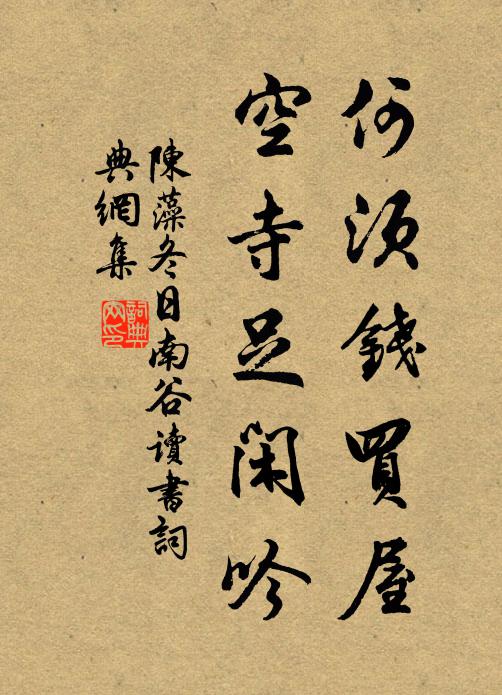 何須錢買屋
空寺足閑吟
陳藻冬日南谷讀書詞
典網集
詞典網印